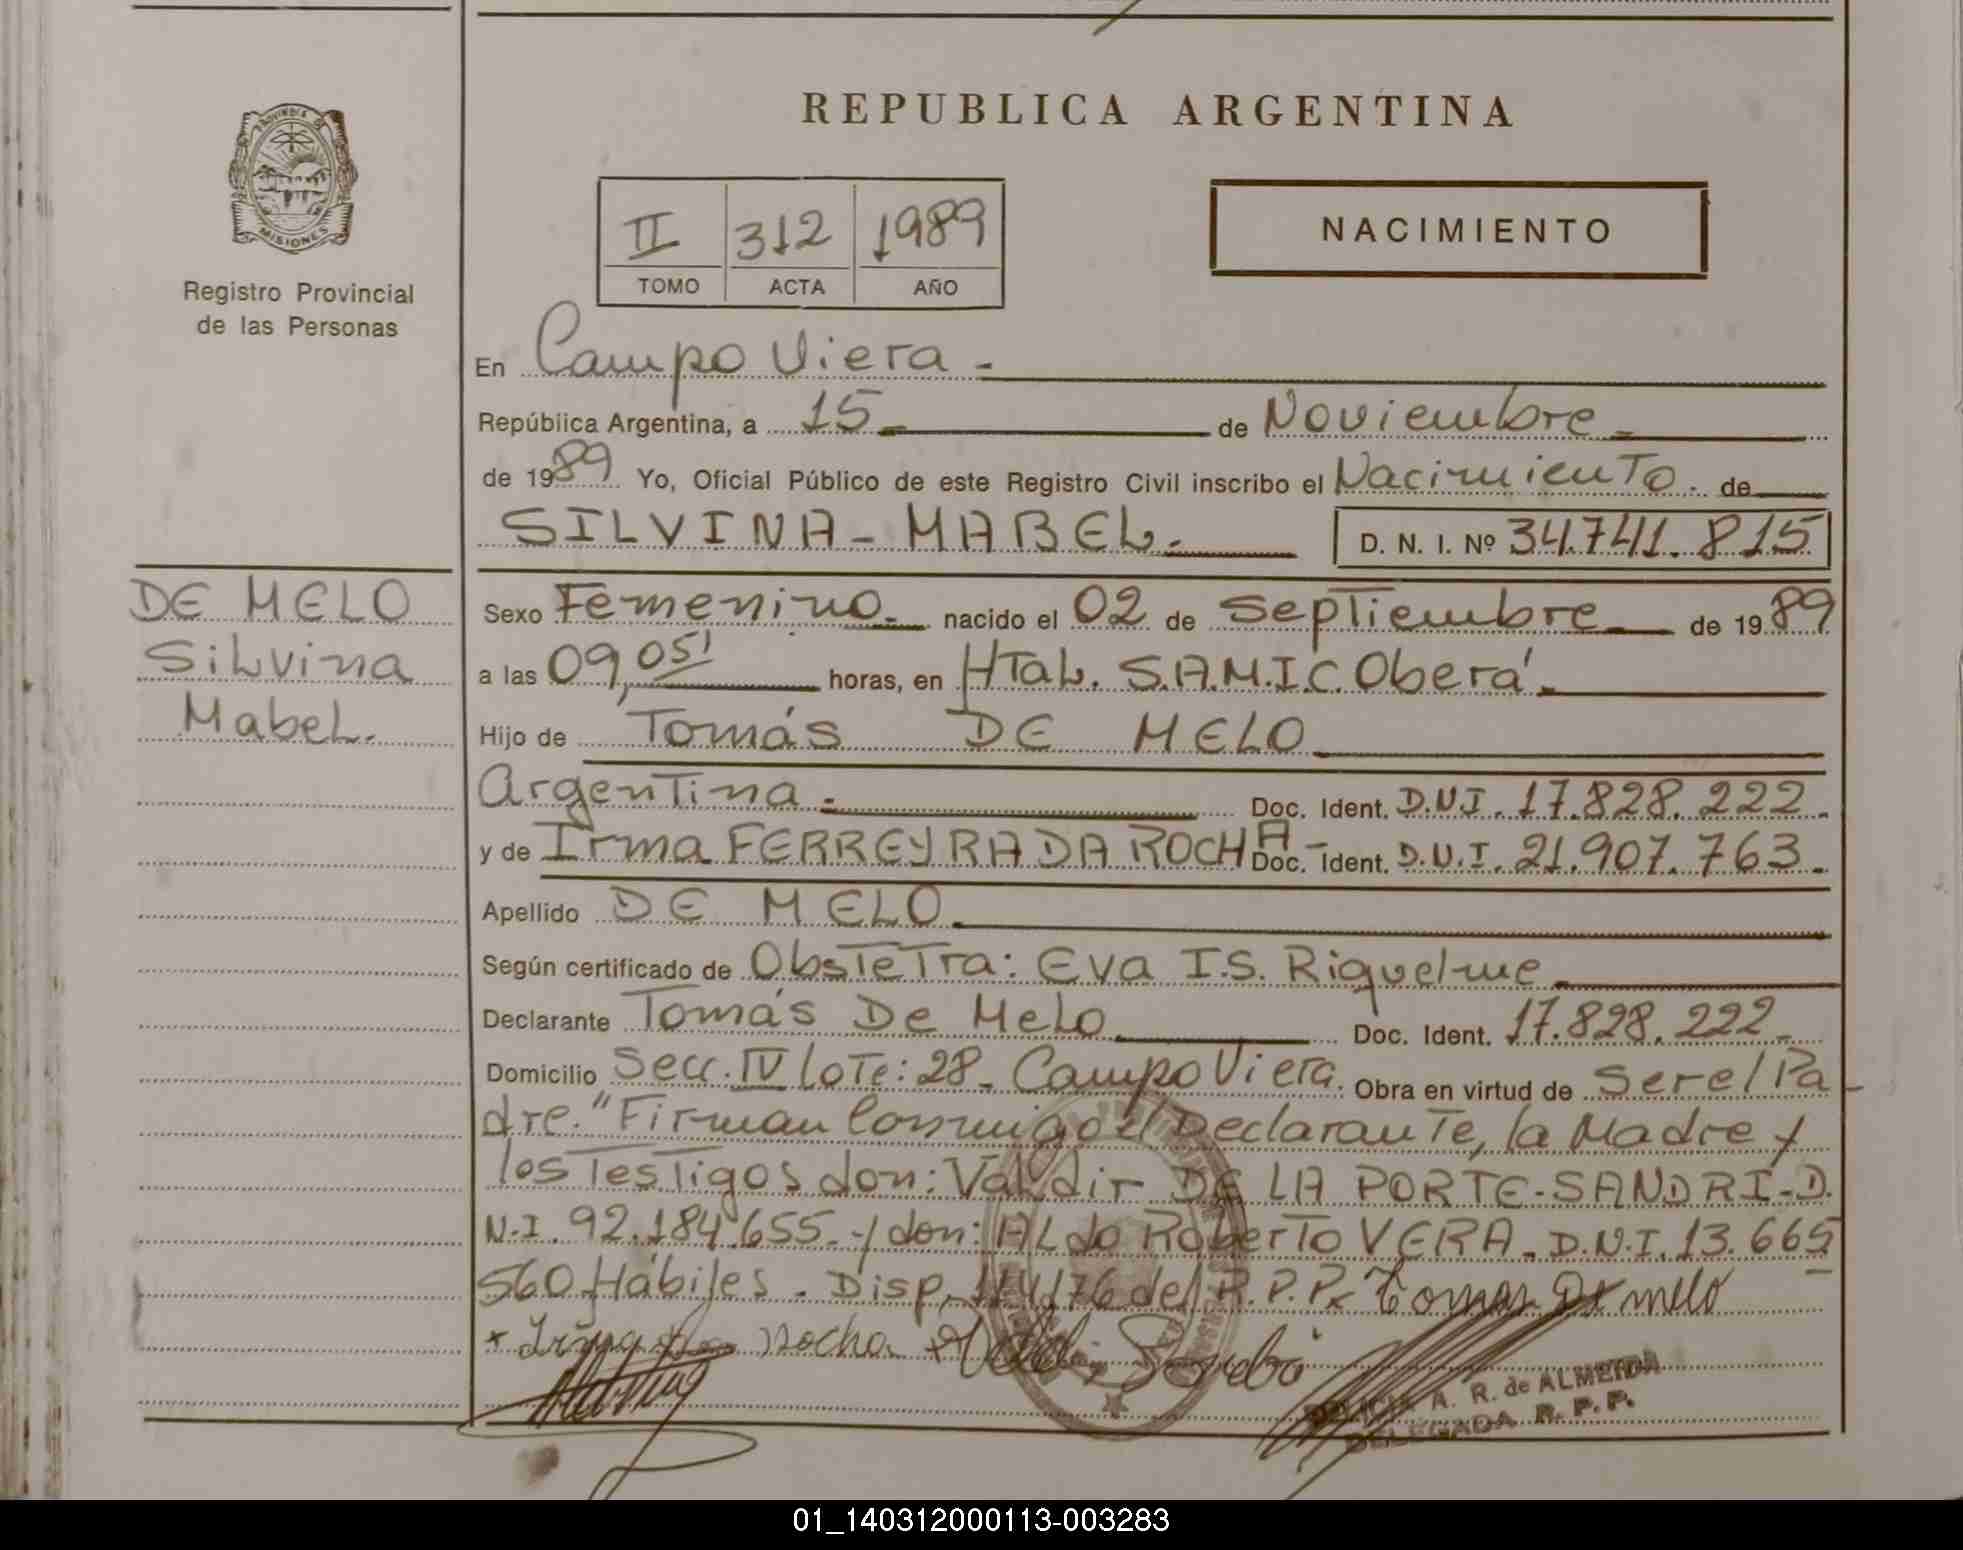 REPUBLICA ARGENTINA
PROVINCIA DE
MISIONES
Registro Provincial
de las Personas
II 312 1989
TOMO ACTA AÑO
NACIMIENTO
En Campo Viera -
República Argentina, a 15 - de Noviembre -
de 1989 Yo, Oficial Público de este Registro Civil inscribo el Nacimiento. de
SILVINA - MABEL. - D. N. I. Nº 34.741.815
DE MELO
Silvina
Mabel.
Sexo Femenino - nacido el 02 de Septiembre - de 1989
a las 09,05' horas, en Htal. S.A.M.I.C. Oberá -
Hijo de Tomás DE MELO
Argentina - Doc. Ident. D.N.I. 17.828.222.
y de Irma FERREYRA DA ROCHA - Doc. Ident. D.N.I. 21.907.763.
Apellido DE MELO -
Según certificado de Obstetra: Eva I.S. Riquelme
Declarante Tomás De Melo Doc. Ident. 17.828.222 -
Domicilio Secc. IV lote: 28 - Campo Viera. Obra en virtud de Ser el Pa -
dre." Firman Conmigo el Declarante, la Madre y
los Testigos don: Valdir DE LA PORTE - SANDRI - D.
N.I. 92.184.655 - y don: Aldo Roberto VERA - D.N.I. 13.665
560 Hábiles. Disp. 114/76 del R.P.P. Tomas De melo
Rocha
DELICIA A. R. de ALMEIDA
DELEGADA R. P. P.
01_140312000113-003283